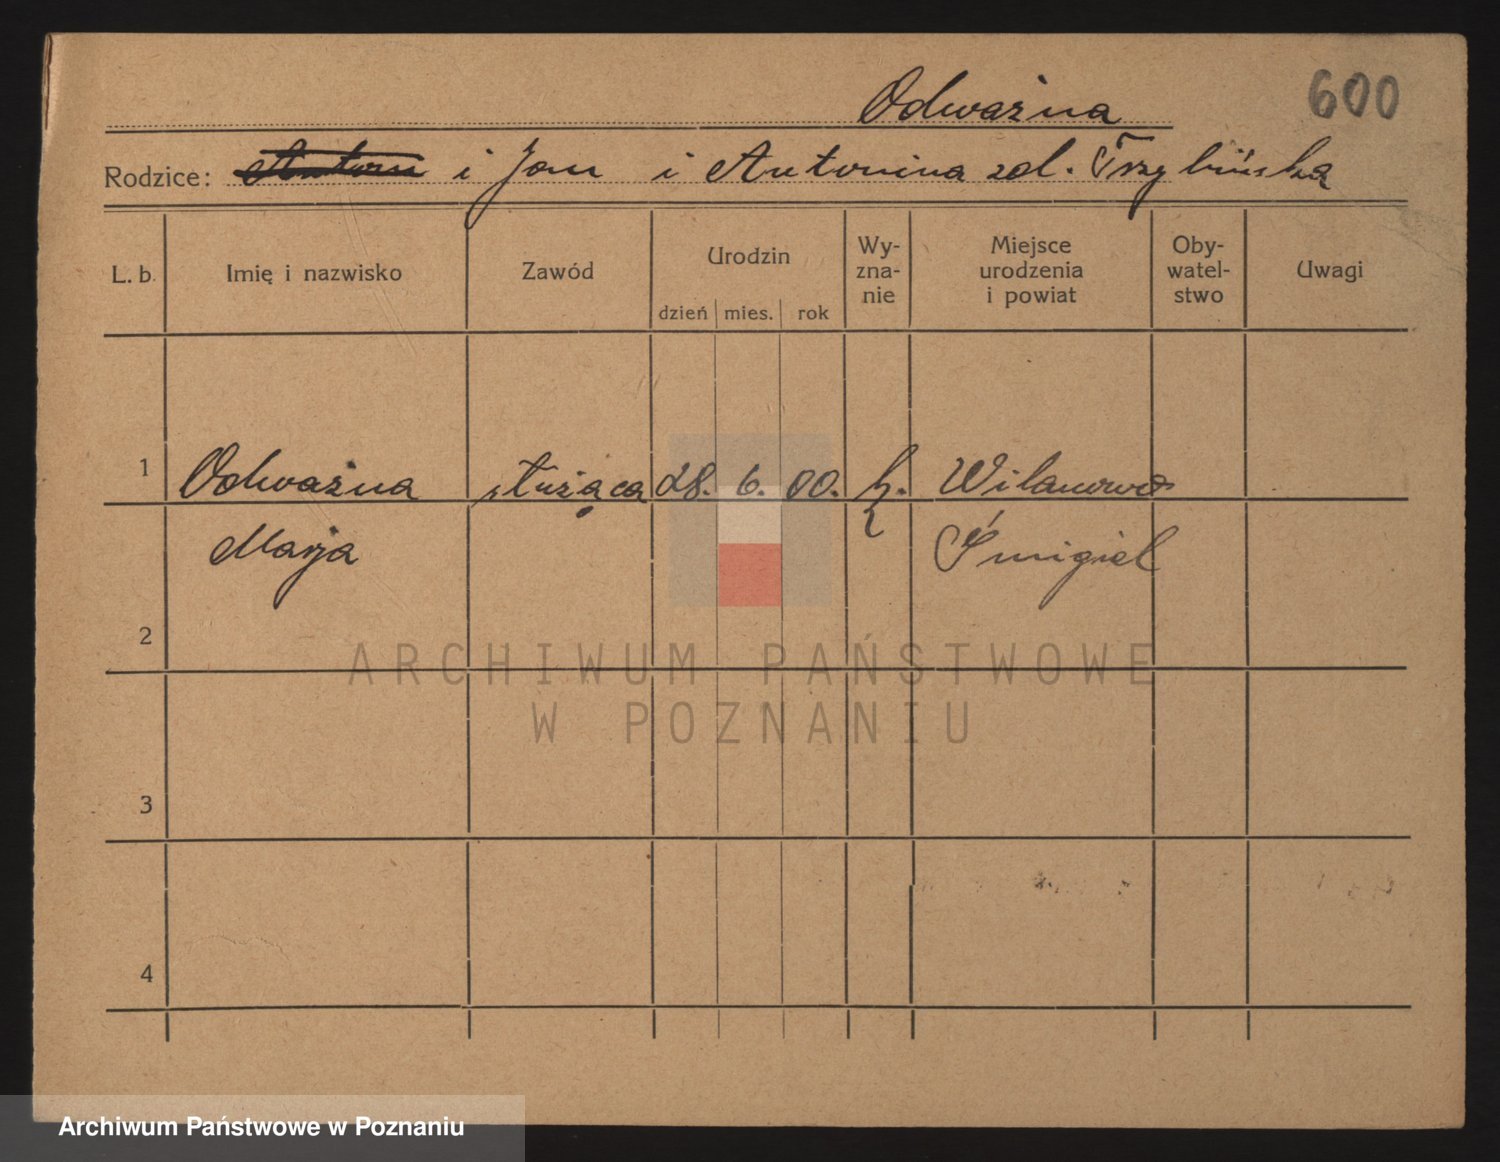 Odważna 600
Rodzice: i Jan i Antonina zd. Trzybińska
L. b. Imię i nazwisko Zawód Urodzin Wy-zna-nie Miejsce urodzenia i powiat Oby-watel-stwo Uwagi
dzień mies. rok
1 Odważna służąca 28. 6. 00. k. Wilanowo
Marja Śmigiel
2
ARCHIWUM PAŃSTWOWE
W POZNANIU
3
4
Archiwum Państwowe w Poznaniu